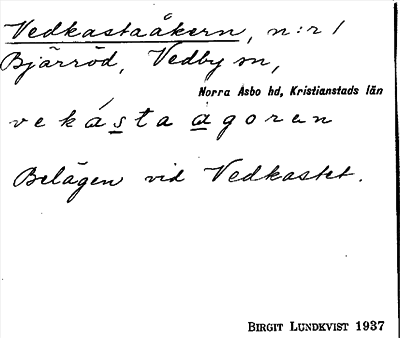 Vedkastaåkern, n:r 1
Bjärröd, Vedby sn,
Norra Åsbo hd, Kristianstads län
vekásta ågoren
Belägen vid Vedkastet.
BIRGIT LUNDKVIST 1937